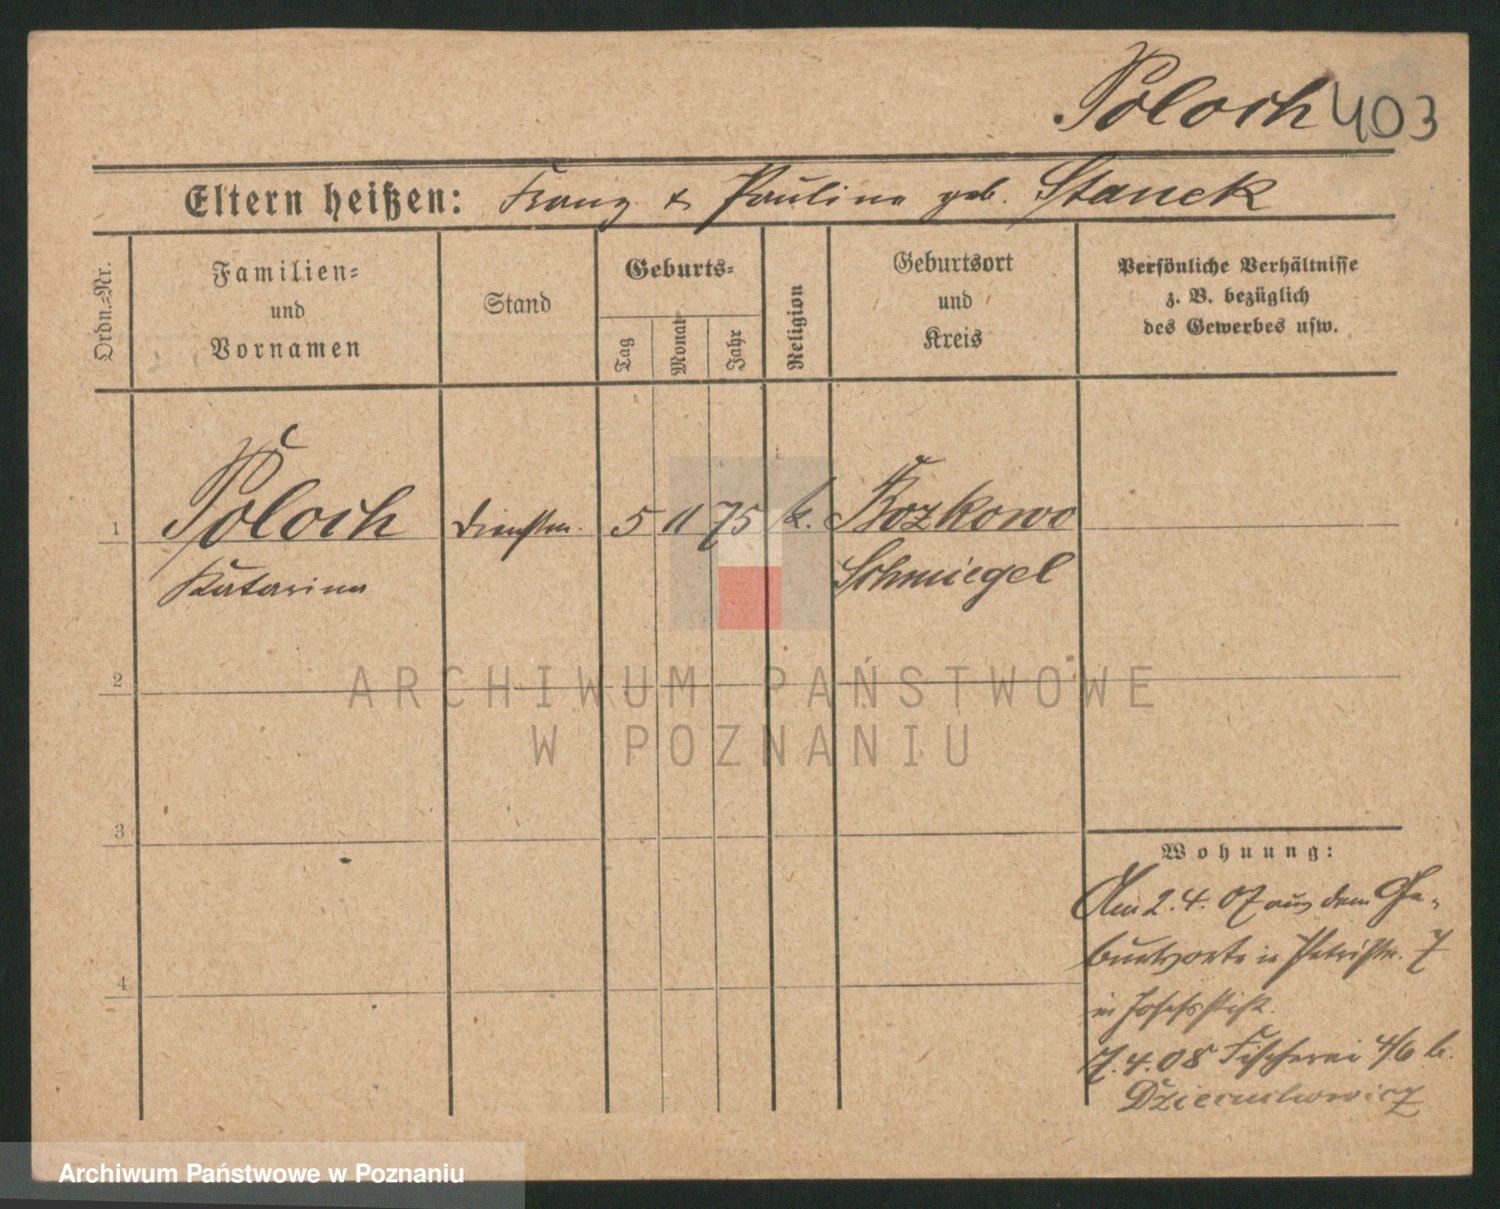 Poloch 403
Eltern heißen: Franz & Paulina geb. Stanek
Ordn.=Nr.
Familien=
und
Vornamen
Stand
Geburts=
Tag
Monat
Jahr
Religion
Geburtsort
und
Kreis
Persönliche Verhältnisse
z. B. bezüglich
des Gewerbes usw.
1 Poloch Dienstm. 5 11 75 k. Bozkowo
Katarina Schmiegel
2
3
4
Wohnung:
Am 2. 4. 07 aus dem Ge-
burtsorte in Petristr. 7
in Josefsstift.
7. 4. 08 Fischerei 4/6 b.
ARCHIWUM PAŃSTWOWE
W POZNANIU
Archiwum Państwowe w Poznaniu